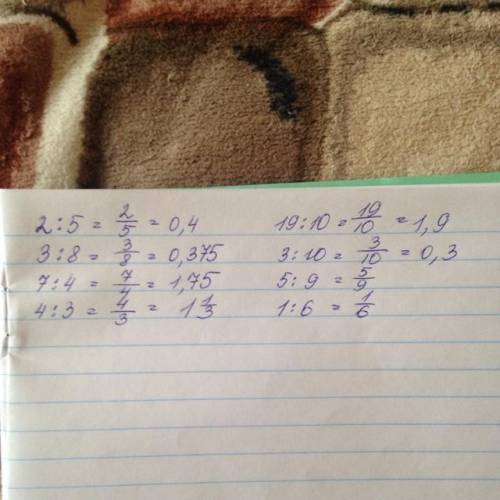 2:5 = 2/5 = 0,4
3:8 = 3/8 = 0,375
7:4 = 7/4 = 1,75
4:3 = 4/3 = 1 1/3
19:10 = 19/10 = 1,9
3:10 = 3/10 = 0,3
5:9 = 5/9
1:6 = 1/6